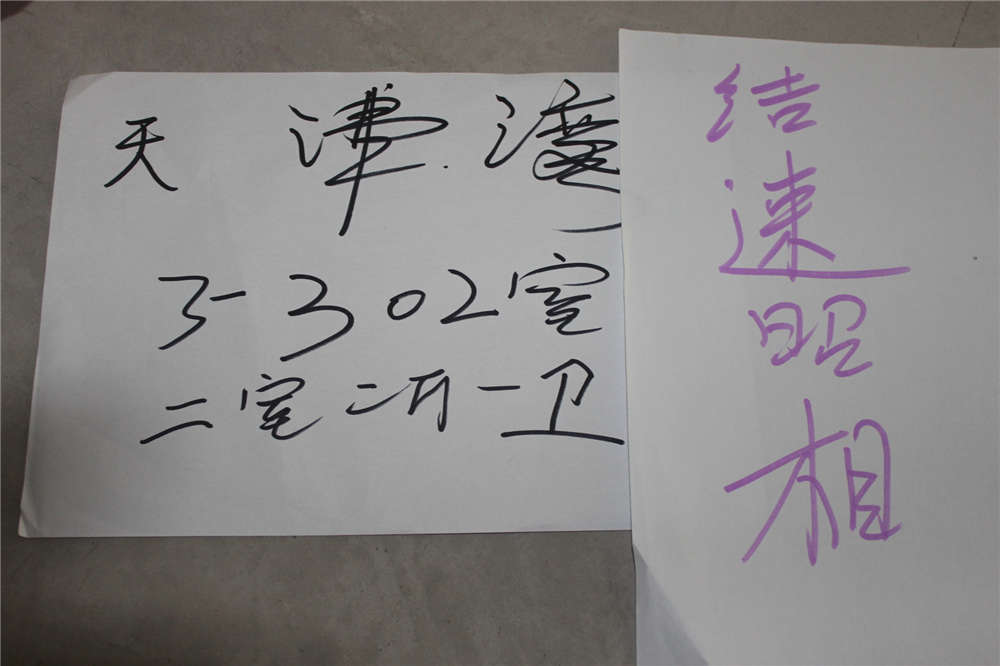 天津湾
3-302室
二室二厅一卫
结速昭相